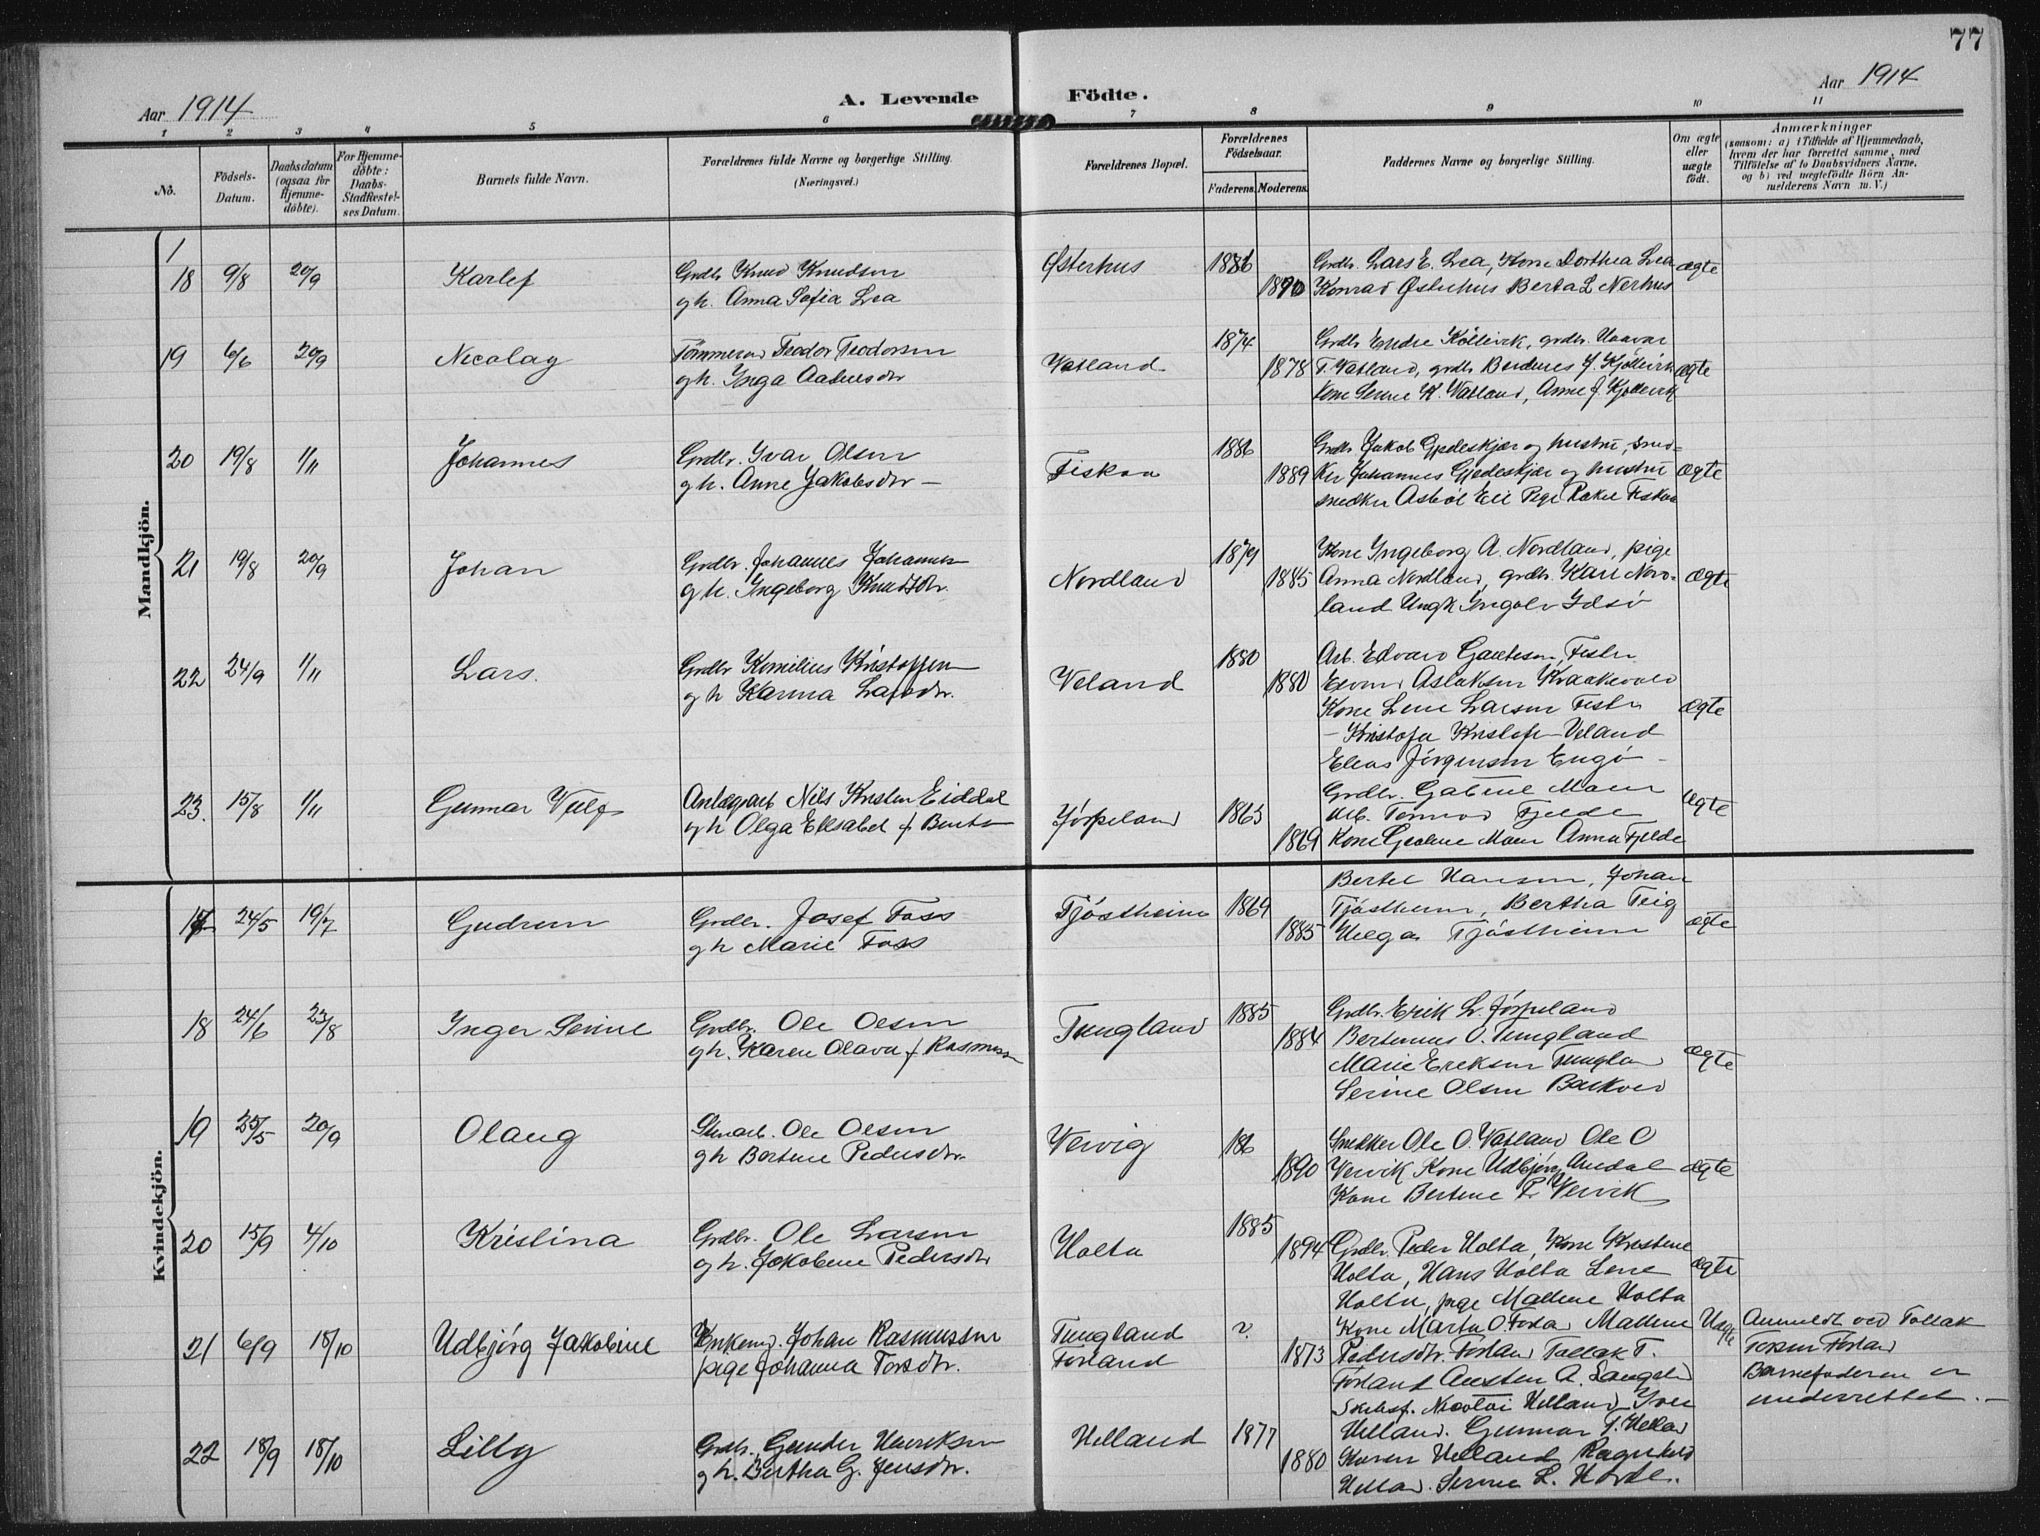 77
Aar 1914
A. Levende Födte.
Aar 1914
1 2 3 4 5 6 7 8 9 10 11
No.
Födsels-
Datum.
Daabsdatum
(ogsaa for
Hjemme-
döbte).
For Hjemme-
döbte:
Daabs-
Stadfæstel-
ses Datum.
Barnets fulde Navn.
Forældrenes fulde Navne og borgerlige Stilling.
(Næringsvei.)
Forældrenes Bopæl.
Forældrenes
Födselsaar.
Faderens. Moderens.
Faddernes Navne og borgerlige Stilling.
Om ægte
eller
uægte
födt.
Anmærkninger
(saasom: a) i Tilfælde af Hjemmedaab,
hvem der har forrettet samme, med
Tilföielse af to Daabsvidners Navne,
og b) ved uægtefödte Börn An-
melderens Navn m. V.)
Mandkjön.
1
18 9/8 20/9 Karlef
Grdbr. Knud Knudsen
gh. Anna Sofia Lea
Østerhus 1886 1890
Grdbr. Lars E. Lea, Kone Dorthea Lea
Konrad Østerhus Berta L Nerhus
ægte
19 6/6 20/9 Nicolay
Tømmermd Teodor Teodorsen
gh. Inga Aadnesdtr
Vatland 1874 1878
Grdbr Endre Köllevik, grdbr.
T. Vatland, grdbr J. Kjöllevik
Kone K. Vatland, Anne J. Kjöllevik
ægte
20 19/8 1/11 Johannes
Grdbr. Ivar Olsen
gh. Anne Jakobsdtr —
Fiskaa 1886 1889
Grdbr Jakob Gjedeskjær og hustru, sned-
ker Johannes Gjedeskjær og hustru
snedker Pige Rakel Fiskaa
ægte
21 19/8 20/9 Johan
Grdbr. Johannes Johannesen
gh. Ingeborg Knudsdtr.
Nordland 1879 1885
Kone Ingeborg A. Nordland, pige
Anna Nordland, grdbr. Kari Nord-
land Ungk Ingolv Idsö
ægte
22 24/9 1/11 Lars.
Grdbr Kornilius Kristoffersen
gh Karina Larsdtr.
Veland 1880 1880
Arb. Edvard Gautesen Fister
Aslaksen
Kone Lene Larsen Fister
— Kristofa Kristofs— Veland
Elias Jörgensen Engö —
ægte
23. 15/8 1/11 Gunnar
Anlægsarb Nils Kristen Eiddal
gh Olga Elisabet f Bentsen
Jörpeland 1863 1869
Grdbr. Gabriel Moen
Arb. Fjelde
Kone Moen Anna Fjelde
ægte
Kvindekjön.
17 24/5 19/7 Gudrun
Grdbr. Josef Foss
gh Marie Foss
Tjöstheim 1864 1885
Bertel Hansen, Johan
Tjöstheim, Bertha Teig
Helga Tjöstheim
ægte
18 24/6 23/8 Inger Serine
Grdbr. Ole Olsen
gh. Karen Olava f Rasmussen
Tungland 1885 1884
Grdbr. Erik L. Jörpeland
Bertinius O. Tungland
Marie Eriksen Tungland
Serine Olsen
ægte
19 25/5 20/9 Olaug
Stenarb. Ole Olsen
gh Bertine Pedersdtr.
Vervig 186 1890
Snedker Ole O. Vatland Ole O
Vervik Kone Udbjörg Aredal
Kone Bertine P. Vervik
ægte
20 15/9 4/10 Kristina
Grdbr. Ole Larsen
gh. Jakobine Pedersdtr
Holta 1885 1894
Grdbr. Peder Holta, Kone Kristine
Holta, Hans Holta Lene
Holta, pige Malene Holta
ægte
21 6/9 18/10 Udbjörg Jakobine
Enkemd. Johan Rasmussen
pige Johanna Torsdtr.
Tungland
Forland ? 1873
Kone Marta O. Malene
Pedersdtr. Forland Tollak T.
Forland Austen A.
Nicolai Helland
Uægte
Anmeldt ved Tollak
Forland
Barnefaderen er
underrettet. —
22 18/9 18/10 Lilly
Grdbr. Gunder Henriksen
gh. Bertha G. Jensdtr.
Helland 1877 1880
Helland. Gunnar T. Helland
Karen Helland Ragnhild
Helland. Serine L.